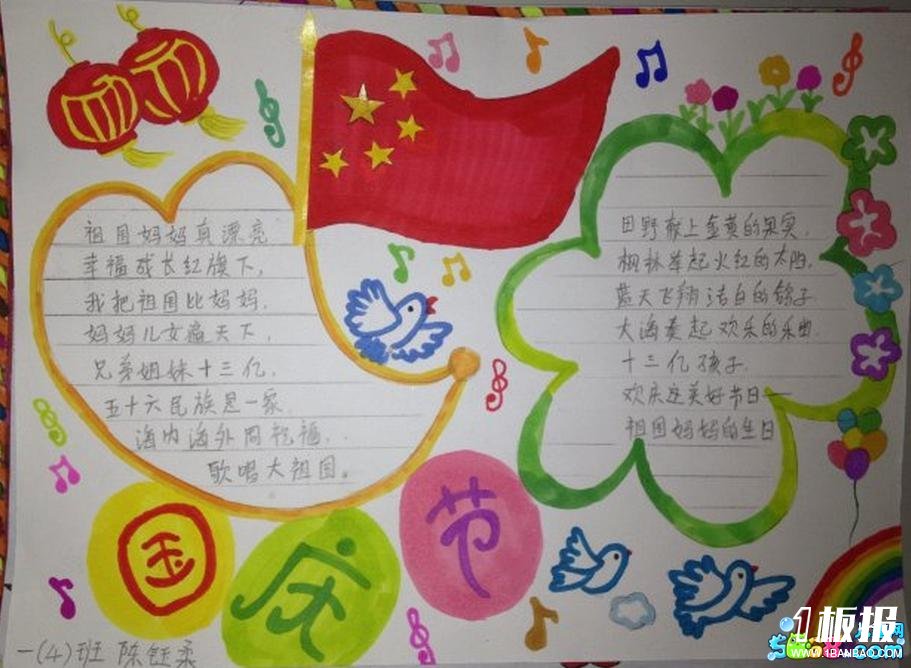 祖国妈妈真漂亮
幸福成长红旗下,
我把祖国比妈妈,
妈妈儿女遍天下,
兄弟姐妹十三亿,
五十六民族是一家.
海内海外同祝福,
歌唱大祖国。
田野献上金黄的果实,
枫林举起火红的太阳,
蓝天飞翔洁白的鸽子
大海奏起欢乐的乐曲
十三亿孩子
欢庆这美好节日——
祖国妈妈的生日
国庆节
一(4)班 陈钰柔
1板报
WWW.1BANBAO.COM